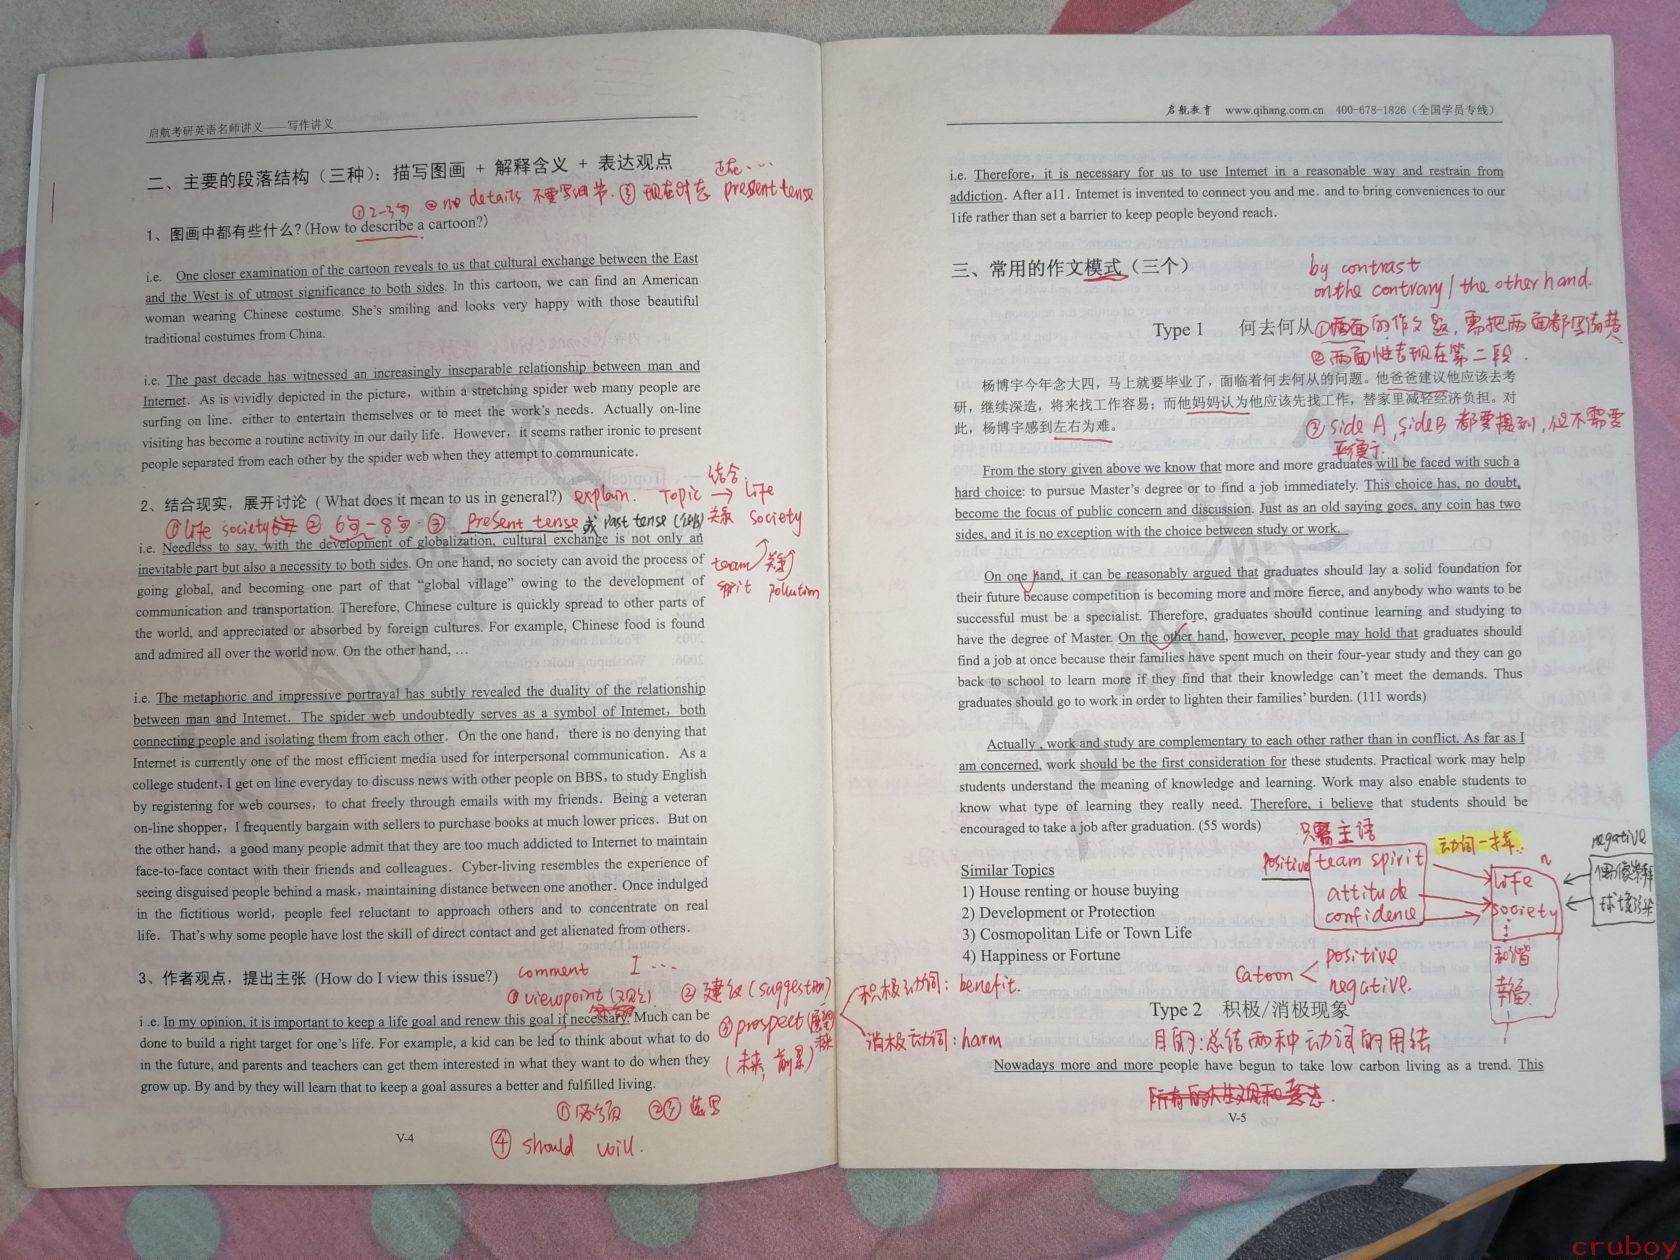 启航考研英语名师讲义——写作讲义
二、主要的段落结构（三种）：描写图画 + 解释含义 + 表达观点
①2-3句 ② no details 不要写细节. ③ 现在时态 present tense
1、图画中都有些什么?(How to describe a cartoon?)
i.e. One closer examination of the cartoon reveals to us that cultural exchange between the East
and the West is of utmost significance to both sides. In this cartoon, we can find an American
woman wearing Chinese costume. She's smiling and looks very happy with those beautiful
traditional costumes from China.
i.e. The past decade has witnessed an increasingly inseparable relationship between man and
Internet. As is vividly depicted in the picture, within a stretching spider web many people are
surfing on line. either to entertain themselves or to meet the work's needs. Actually on-line
visiting has become a routine activity in our daily life. However, it seems rather ironic to present
people separated from each other by the spider web when they attempt to communicate.
2、结合现实，展开讨论 ( What does it mean to us in general?) explain. Topic 结合 → life
①life society ② 6句-8句 ③ present tense 或 past tense 关系 society
i.e. Needless to say, with the development of globalization, cultural exchange is not only an
inevitable part but also a necessity to both sides. On one hand, no society can avoid the process of
going global, and becoming one part of that “global village” owing to the development of
communication and transportation. Therefore, Chinese culture is quickly spread to other parts of
the world, and appreciated or absorbed by foreign cultures. For example, Chinese food is found
and admired all over the world now. On the other hand, …
team 关系
pollution
i.e. The metaphoric and impressive portrayal has subtly revealed the duality of the relationship
between man and Internet. The spider web undoubtedly serves as a symbol of Internet, both
connecting people and isolating them from each other. On the one hand, there is no denying that
Internet is currently one of the most efficient media used for interpersonal communication. As a
college student, I get on line everyday to discuss news with other people on BBS, to study English
by registering for web courses, to chat freely through emails with my friends. Being a veteran
on-line shopper, I frequently bargain with sellers to purchase books at much lower prices. But on
the other hand, a good many people admit that they are too much addicted to Internet to maintain
face-to-face contact with their friends and colleagues. Cyber-living resembles the experience of
seeing disguised people behind a mask, maintaining distance between one another. Once indulged
in the fictitious world, people feel reluctant to approach others and to concentrate on real
life. That's why some people have lost the skill of direct contact and get alienated from others.
3、作者观点，提出主张 (How do I view this issue?) comment I ...
① viewpoint (观点) ② 建议 (suggestion)
③ prospect
(未来, 前景)
i .e. In my opinion, it is important to keep a life goal and renew this goal if necessary. Much can be
done to build a right target for one's life. For example, a kid can be led to think about what to do
in the future, and parents and teachers can get them interested in what they want to do when they
grow up. By and by they will learn that to keep a goal assures a better and fulfilled living.
①必须 ②③ 选写
④ should will.
V-4
启航教育 www.qihang.com.cn 400-678-1826（全国学员专线）
i.e. Therefore, it is necessary for us to use Internet in a reasonable way and restrain from
addiction. After a11. Internet is invented to connect you and me. and to bring conveniences to our
1ife rather than set a barrier to keep people beyond reach.
三、常用的作文模式（三个）
by contrast
on the contrary / the other hand.
Type 1 何去何从
①两面的作文题, 需把两面都写清楚
②两面性表现在第二段.
杨博宇今年念大四，马上就要毕业了，面临着何去何从的问题。他爸爸建议他应该去考
研，继续深造，将来找工作容易；而他妈妈认为他应该先找工作，替家里减轻经济负担。对
此，杨博宇感到左右为难。
③ side A, side B 都要提到, 但不需要
From the story given above we know that more and more graduates will be faced with such a
hard choice: to pursue Master's degree or to find a job immediately. This choice has, no doubt,
become the focus of public concern and discussion. Just as an old saying goes, any coin has two
sides, and it is no exception with the choice between study or work.
On one hand, it can be reasonably argued that graduates should lay a solid foundation for
their future because competition is becoming more and more fierce, and anybody who wants to be
successful must be a specialist. Therefore, graduates should continue learning and studying to
have the degree of Master. On the other hand, however, people may hold that graduates should
find a job at once because their families have spent much on their four-year study and they can go
back to school to learn more if they find that their knowledge can't meet the demands. Thus
graduates should go to work in order to lighten their families' burden. (111 words)
Actually , work and study are complementary to each other rather than in conflict. As far as I
am concerned, work should be the first consideration for these students. Practical work may help
students understand the meaning of knowledge and learning. Work may also enable students to
know what type of learning they really need. Therefore, i believe that students should be
encouraged to take a job after graduation. (55 words)
Similar Topics
1) House renting or house buying
2) Development or Protection
3) Cosmopolitan Life or Town Life
4) Happiness or Fortune
主语
positive
team spirit
attitude
confidence
动词一样
n
life
society
和谐
幸福
negative
catoon
positive
negative.
积极动词: benefit.
消极动词: harm
Type 2 积极/消极现象
目的: 总结两种动词的用法
Nowadays more and more people have begun to take low carbon living as a trend. This
V-5
cruboy